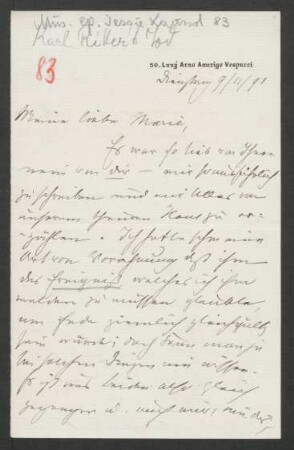 Mus. ep. Jessie Laussot 83
Karl Ritter's Tod
83
50. Lung' Arno Amerigo Vespucci
Dienstag 9/11/91
Meine liebe Marie,
Es war so lieb von Ihnen
nein von dir – mir so ausführlich
zu schreiben und mir Alles von
unserem theuren Hans zu er-
zählen. Ich hatte schon eine
Art von Vorahnung daß ihm
das Ereigniß welches ich ihm
melden zu müssen glaubte,
am Ende ziemlich gleichgültig
sein würde; doch kann man ja
bei solchen Dingen nie wissen.
Es ist uns beiden also gleich
gegangen u. auch mir,